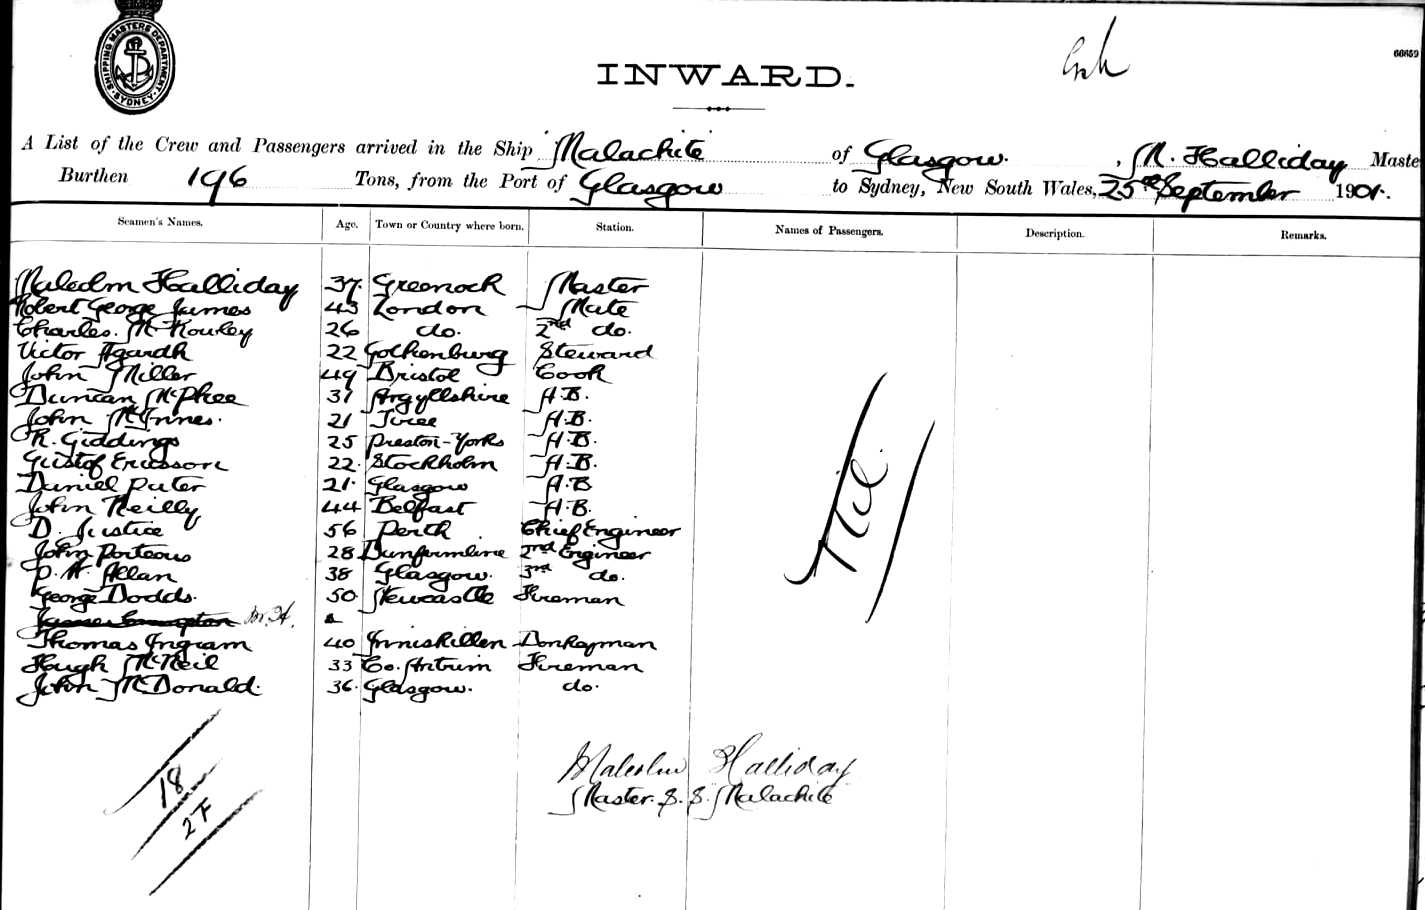 SHIPPING MASTERS DEPARTMENT SYDNEY
66659
INWARD.
A List of the Crew and Passengers arrived in the Ship Malachite of Glasgow. , M. Halliday Maste
Burthen 196 Tons, from the Port of Glasgow to Sydney, New South Wales, 25th September 1901.
Seamen's Names. Age. Town or Country where born. Station. Names of Passengers. Description. Remarks.
Malcolm Halliday 37. Greenock Master
Robert George James 43 London Mate
Charles. M. Rowley 26 do. 2nd do.
Victor Agardh 22 Gothenburg Steward
John Miller 49 Bristol Cook
Duncan McPhee 37 Argyllshire A.B.
John McInnes. 21 Tiree A.B.
R. Giddings 25 Preston-Yorks A.B.
Gustof Ericsson 22. Stockholm A.B.
Daniel Pater 21. Glasgow A.B
John Reilly 44 Belfast A.B.
D. Justice 56 Perth Chief Engineer
John Porteous 28 Dunfermline 2nd Engineer
P. H. Allan 38 Glasgow. 3rd do.
George Dodds. 50. Newcastle Fireman
M.H.
Thomas Ingram 40 Inniskillen Donkeyman
Hugh McNeil 33 Co. Antrim Fireman
John McDonald. 36. Glasgow. do.
Nil.
Malcolm Halliday
Master. S. S. Malachite
18
2F